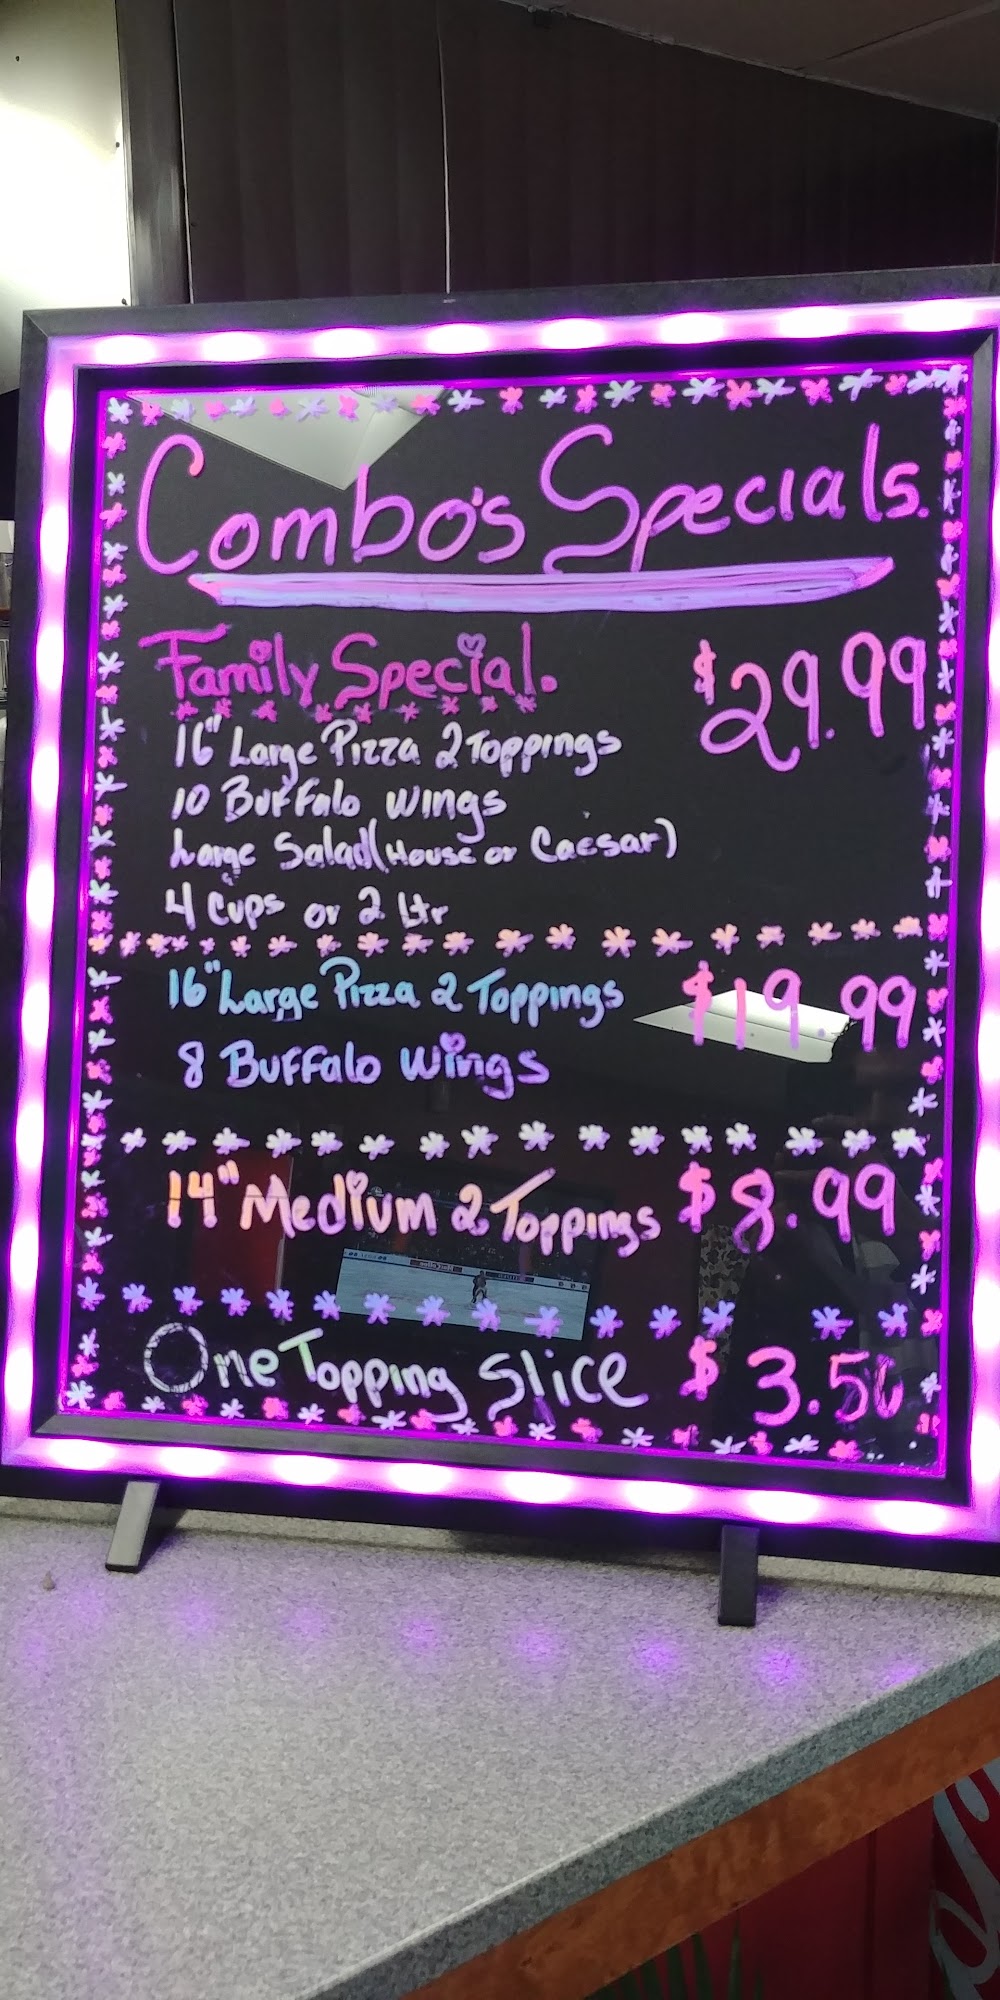 Combo's Specials.
Family Special. $29.99
16" Large Pizza 2 Toppings
10 Buffalo wings
Large Salad (House or Caesar)
4 Cups or 2 Ltr
16" Large Pizza 2 Toppings $19.99
8 Buffalo wings
14" Medium 2 Toppings $8.99
One Topping Slice $3.50